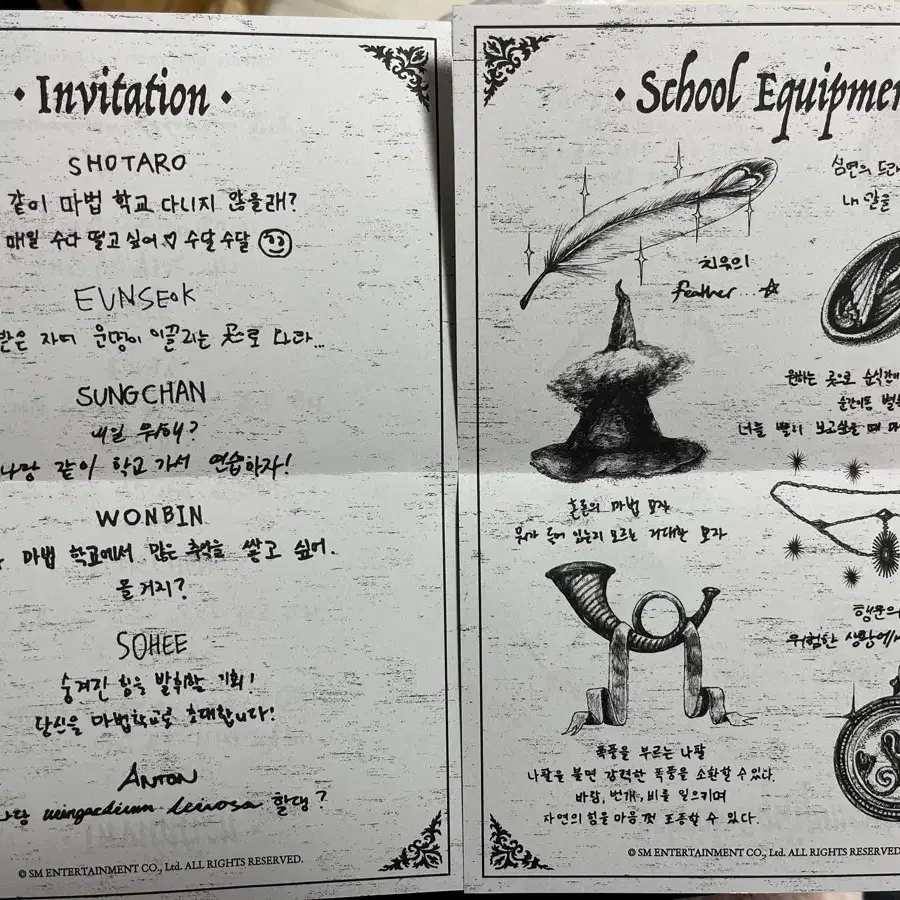 Invitation
SHOTARO
같이 마법 학교 다니지 않을래?
매일 수다 떨고 싶어♡ 수달수달
EUNSEOK
받은 자여 운명이 이끌리는 곳으로 나와...
SUNGCHAN
내일 뭐해?
나랑 같이 학교 가서 연습하자!
WONBIN
마법 학교에서 많은 추억을 쌓고 싶어.
올 거지?
SOHEE
숨겨진 힘을 발휘할 기회!
당신을 마법학교로 초대합니다!
ANTON
나랑 wingardium leviosa 할댕?
© SM ENTERTAINMENT CO., Ltd. ALL RIGHTS RESERVED.
School Equipmen
심연의
내 알을
치유의
feather...☆
원하는 곳으로 순식간에
순간이동
너를 빨리 보고싶을 때
혼돈의 마법 모자
뭐가 들어 있는지 모르는 거대한 모자
행운의
위험한 상황에서
폭풍을 부르는 나팔
나팔을 불면 강력한 폭풍을 소환할 수 있다.
바람, 번개, 비를 일으키며
자연의 힘을 마음껏 조종할 수 있다.
© SM ENTERTAINMENT CO., Ltd. ALL RIGHTS RESERVED.